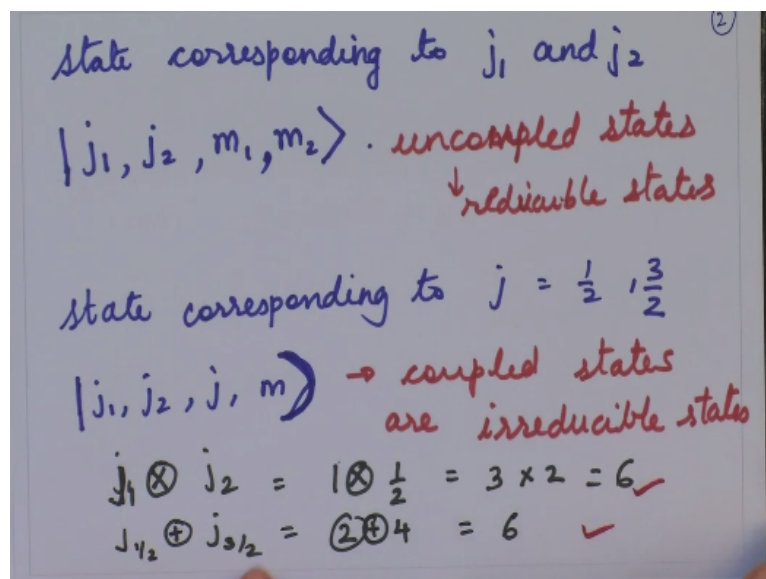 ②
state corresponding to j₁ and j₂
|j₁, j₂, m₁, m₂⟩. uncoupled states
↓ reducible states
state corresponding to j = 1/2, 3/2
|j₁, j₂, j, m) → coupled states
are irreducible states
j₁ ⊗ j₂ = 1 ⊗ 1/2 = 3 × 2 = 6 ✓
J₁/₂ ⊕ j₃/₂ = 2 ⊕ 4 = 6 ✓